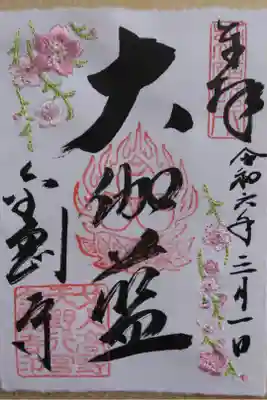 奉拝
令和六年三月一日
大伽藍
金剛寺